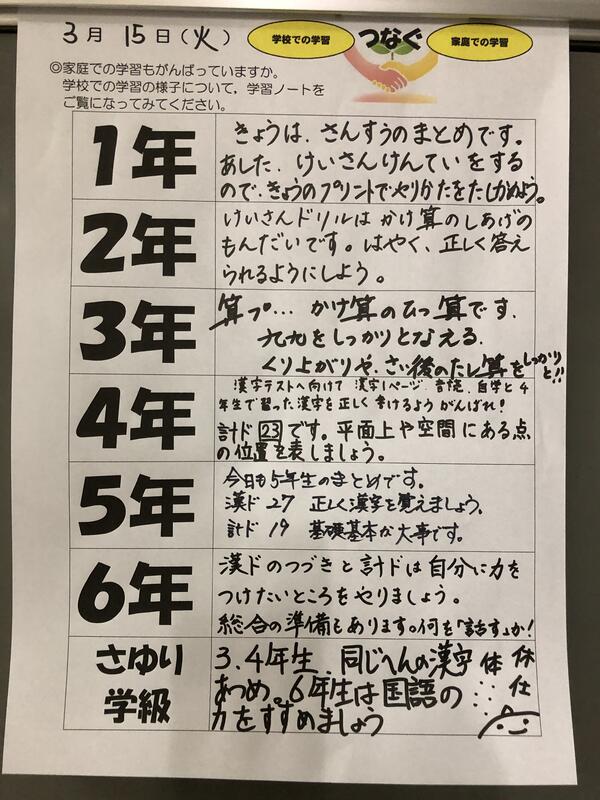 3月 15日(火)
学校での学習
つなぐ
家庭での学習
◎家庭での学習もがんばっていますか。
学校での学習の様子について，学習ノートを
ご覧になってみてください。
1年
きょうは、さんすうのまとめです。
あした、けいさんけんていをする
ので、きょうのプリントでやりかたをたしかめよう。
2年
けいさんドリルはかけ算のしあげの
もんだいです。はやく、正しく答え
られるようにしよう。
3年
算プ… かけ算のひっ算です。
九九をしっかりとなえる。
くり上がりや、さい後のたし算をしっかり
と!!
4年
漢字テストへ向けて 漢字1ページ、音読、自学と4
年生で習った漢字を正しく書けるようがんばれ!
計ド 23 です。平面上や空間にある点
の位置を表しましょう。
5年
今日も5年生のまとめです。
漢ド 27 正しく漢字を覚えましょう。
計ド 19 基礎基本が大事です。
6年
漢ドのつづきと計ドは自分に力を
つけたいところをやりましょう。
総合の準備もあります。何を「話す」か!
さゆり
学級
3.4年生、同じへんの漢字 体 休
あつめ。6年生は国語の 仕
力をすすめましょう